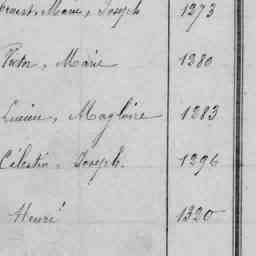 Ernest, Marie, Joseph 1273
Victor, Marie 1280
Lucien, Magloire 1283
Célestin, Joseph. 1296
Henri 1320